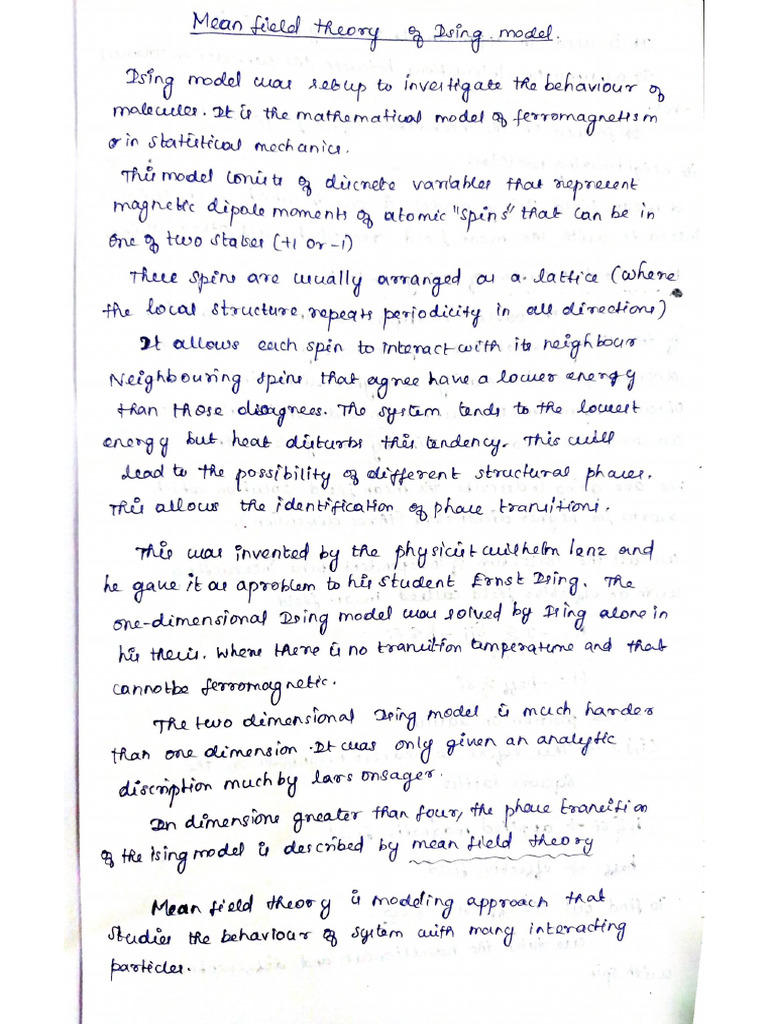 Mean field theory of Ising model.
Ising model was setup to investigate the behaviour of
molecules. It is the mathematical model of ferromagnetism
or in statistical mechanics.
This model conists of discrete variables that represent
magnetic dipole moments of atomic "spins" that can be in
one of two states (+1 or -1)
These spins are usually arranged as a lattice (where
the local structure, repeats periodicity in all directions)
It allows each spin to interact with its neighbour
Neighbouring spins that agree have a lower energy
than those disagrees. The system tends to the lowest
energy but heat disturbs this tendency. This will
lead to the possibility of different structural phases.
This allows the identification of phase transitions.
This was invented by the physicist wilhelm lenz and
he gave it as a problem to his student Ernst Ising. The
one-dimensional Ising model was solved by Ising alone in
his thesis. Where there is no transition temperature and that
cannot be ferromagnetic.
The two dimensional Ising model is much harder
than one dimension. It was only given an analytic
discription much by lars onsager.
In dimensions greater than four, the phase transition
of the ising model is described by mean field theory
Mean field theory is modeling approach that
studies the behaviour of system with many interacting
particles.